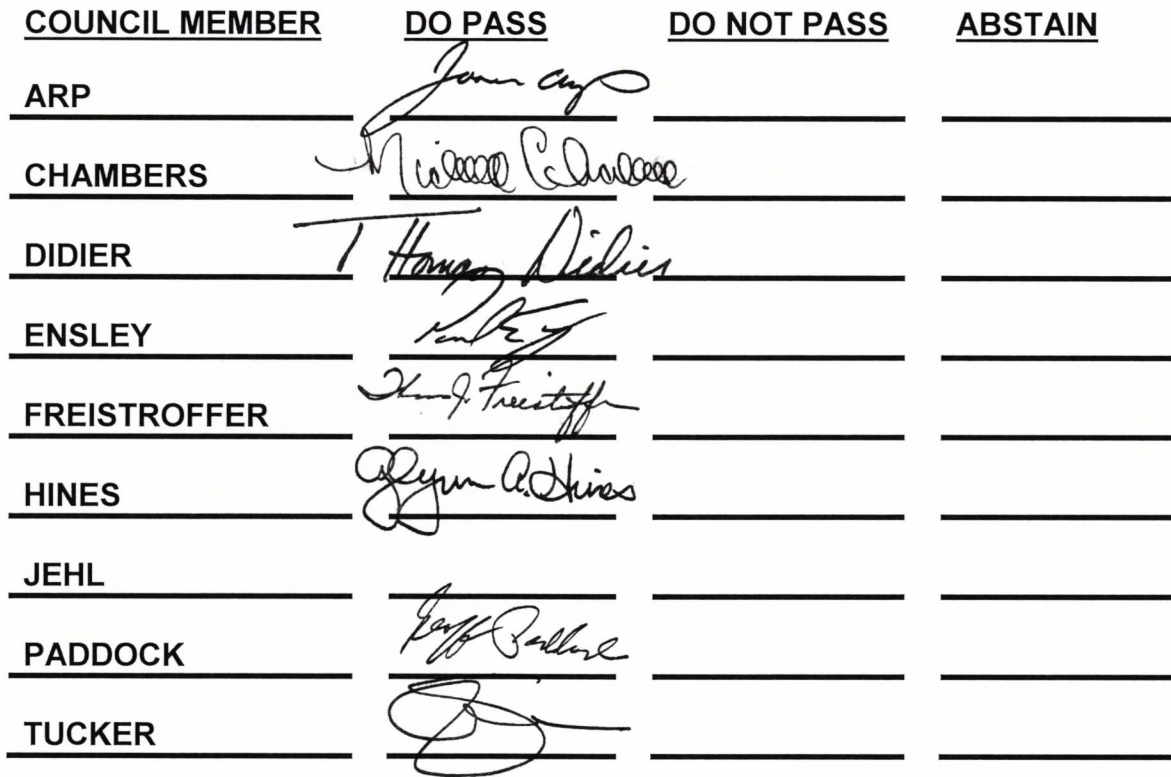 COUNCIL MEMBER DO PASS DO NOT PASS ABSTAIN
ARP
CHAMBERS
DIDIER T Didier
ENSLEY
FREISTROFFER J. Freistroffer
HINES Glynn A. Hines
JEHL
PADDOCK Geoff Paddock
TUCKER